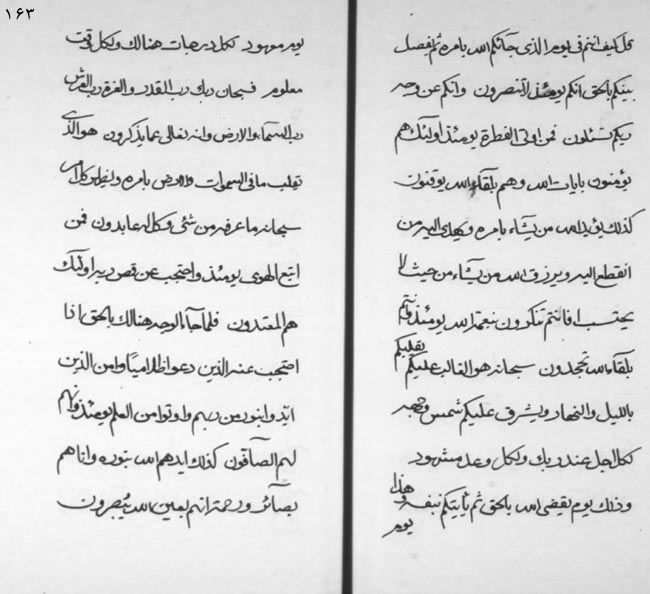 ١۶٣
قل كيف انتم فى يوم الذى جائكم الله بامره ثم يفصل
بينكم بالحق انكم يومئذ لا تنصرون وانكم عن وجه
ربكم تسئلون فمن اوتى الفطرة يومئذ اولئك هم
يؤمنون بايات الله وهم بلقاء الله يوقنون
كذلك يؤيد الله من يشاء بامره ويهدى اليه من
انقطع اليه ويرزق الله من يشاء من حيث لا
يحتسب افانتم تنكرون نعمة الله يومئذ وانتم
بلقاء الله تجحدون سبحانه هو الغالب عليكم يقلبكم
بالليل والنهار ويشرق عليكم شمس وجهه
لكل اجل عند ربك ولكل وعد مشهود
وذلك يوم يقضى الله بالحق ثم يأتيكم بنفسه وهذا يوم
يوم موعود لكل درجات هنالك ولكل وقت
معلوم فسبحان ربك رب القدر والعزة رب العرش
رب السماء والارض وانه تعالى عما يذكرون هو الذى
تقلب ما فى السموات والارض بامره
سبحانه ما عرفه من شئى وكل له عابدون فمن
اتبع الهوى يومئذ واحتجب عن قص ربه اولئك
هم المعتدون فلما جاء الوجه هنالك بالحق اذا
احتجب عنه الذين دعوا ظلاميا وامن الذين
ايدوا بنور من ربهم واوتوا من العلم يومئذ وانهم
لهم الصادقون كذلك ايدهم الله بنوره واتاهم
بصائر ورحمة انهم بعين الله يبصرون